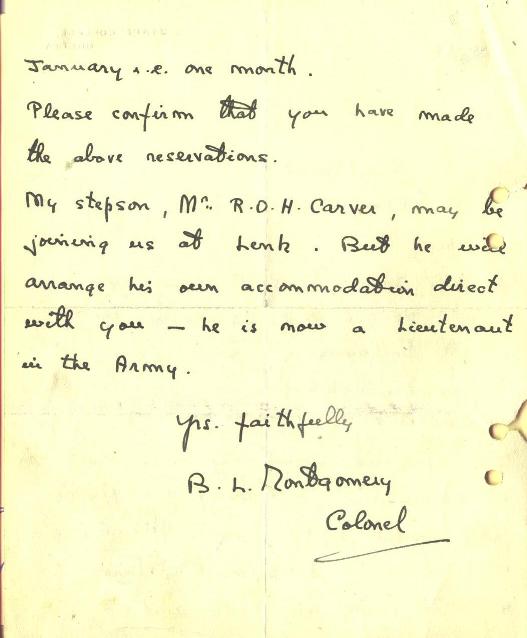 January i.e. one month.
Please confirm that you have made
the above reservations.
My stepson, Mr. R.O.H. Carver, may be
joining us at Lenk. But he will
arrange his own accommodation direct
with you — he is now a Lieutenant
in the Army.
Yrs. faithfully
B. L. Montgomery
Colonel